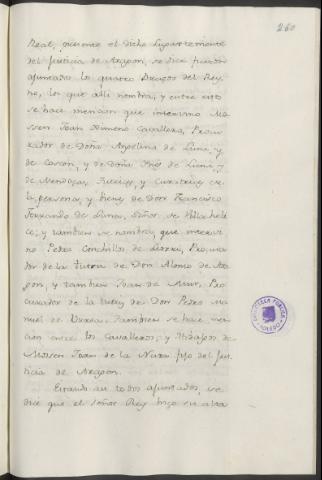 260
Real, presente el dicho Lugarteniente
del Justicia de Aragon, se dice fueron
ajuntados los quatro Brazos del Rey-
no, los que alli nombra, y entre estos
se hace mencion que intervino Mo-
ssen Joan Ximeno Cavallero, Procu-
rador de Doña de Luna y
de y de Doña Ines de Luna y
de Mendoza, y de
la persona, y bienes de Don Francisco
Fernando de Luna, Señor de
y tambien se nombra, que intervi-
no Pedro Conchillos de Procura-
dor de la tutora de Don Alonso de Ara-
gon, y tambien Joan de Mur, Pro-
curador de la tutriz de Don Pedro Ma-
nuel de Urrea. Tambien se hace men-
cion entre los Cavalleros, y Hidalgos de
Mossen Joan de la Nuza fijo del Jus-
ticia de Aragon.
Estando asi todos ajuntados, se
dice que el señor Rey hizo su alta
BIBLIOTECA PUBLICA
TOLEDO